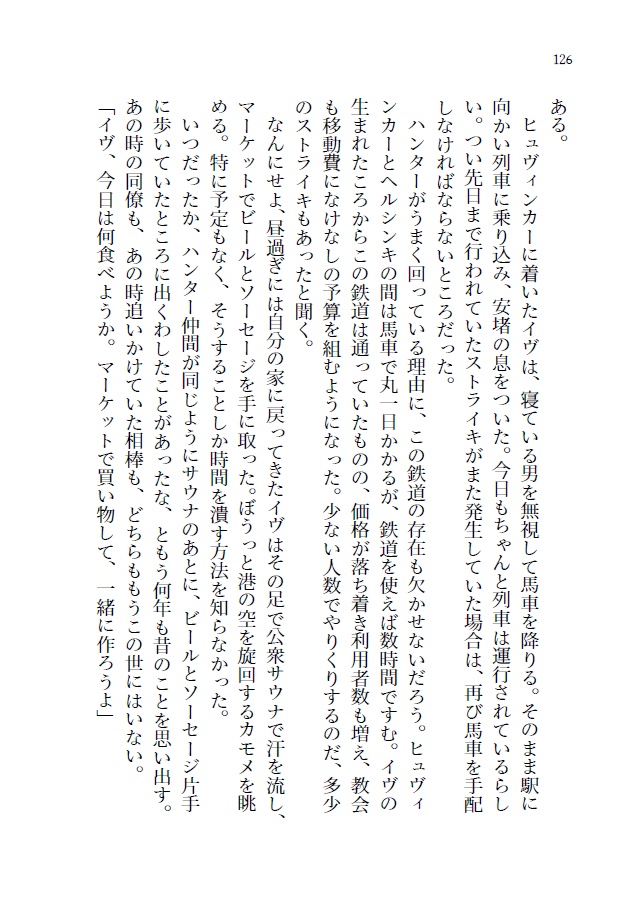 126
ある。
　ヒュヴィンカーに着いたイヴは、寝ている男を無視して馬車を降りる。そのまま駅に
向かい列車に乗り込み、安堵の息をついた。今日もちゃんと列車は運行されているらし
い。つい先日まで行われていたストライキがまた発生していた場合は、再び馬車を手配
しなければならないところだった。
　ハンターがうまく回っている理由に、この鉄道の存在も欠かせないだろう。ヒュヴィ
ンカーとヘルシンキの間は馬車で丸一日かかるが、鉄道を使えば数時間ですむ。イヴの
生まれたころからこの鉄道は通っていたものの、価格が落ち着き利用者数も増え、教会
も移動費になけなしの予算を組むようになった。少ない人数でやりくりするのだ、多少
のストライキもあったと聞く。
　なんにせよ、昼過ぎには自分の家に戻ってきたイヴはその足で公衆サウナで汗を流し、
マーケットでビールとソーセージを手に取った。ぼうっと港の空を旋回するカモメを眺
める。特に予定もなく、そうすることしか時間を潰す方法を知らなかった。
　いつだったか、ハンター仲間が同じようにサウナのあとに、ビールとソーセージ片手
に歩いていたところに出くわしたことがあったな、ともう何年も昔のことを思い出す。
あの時の同僚も、あの時追いかけていた相棒も、どちらももうこの世にはいない。
「イヴ、今日は何食べようか。マーケットで買い物して、一緒に作ろうよ」